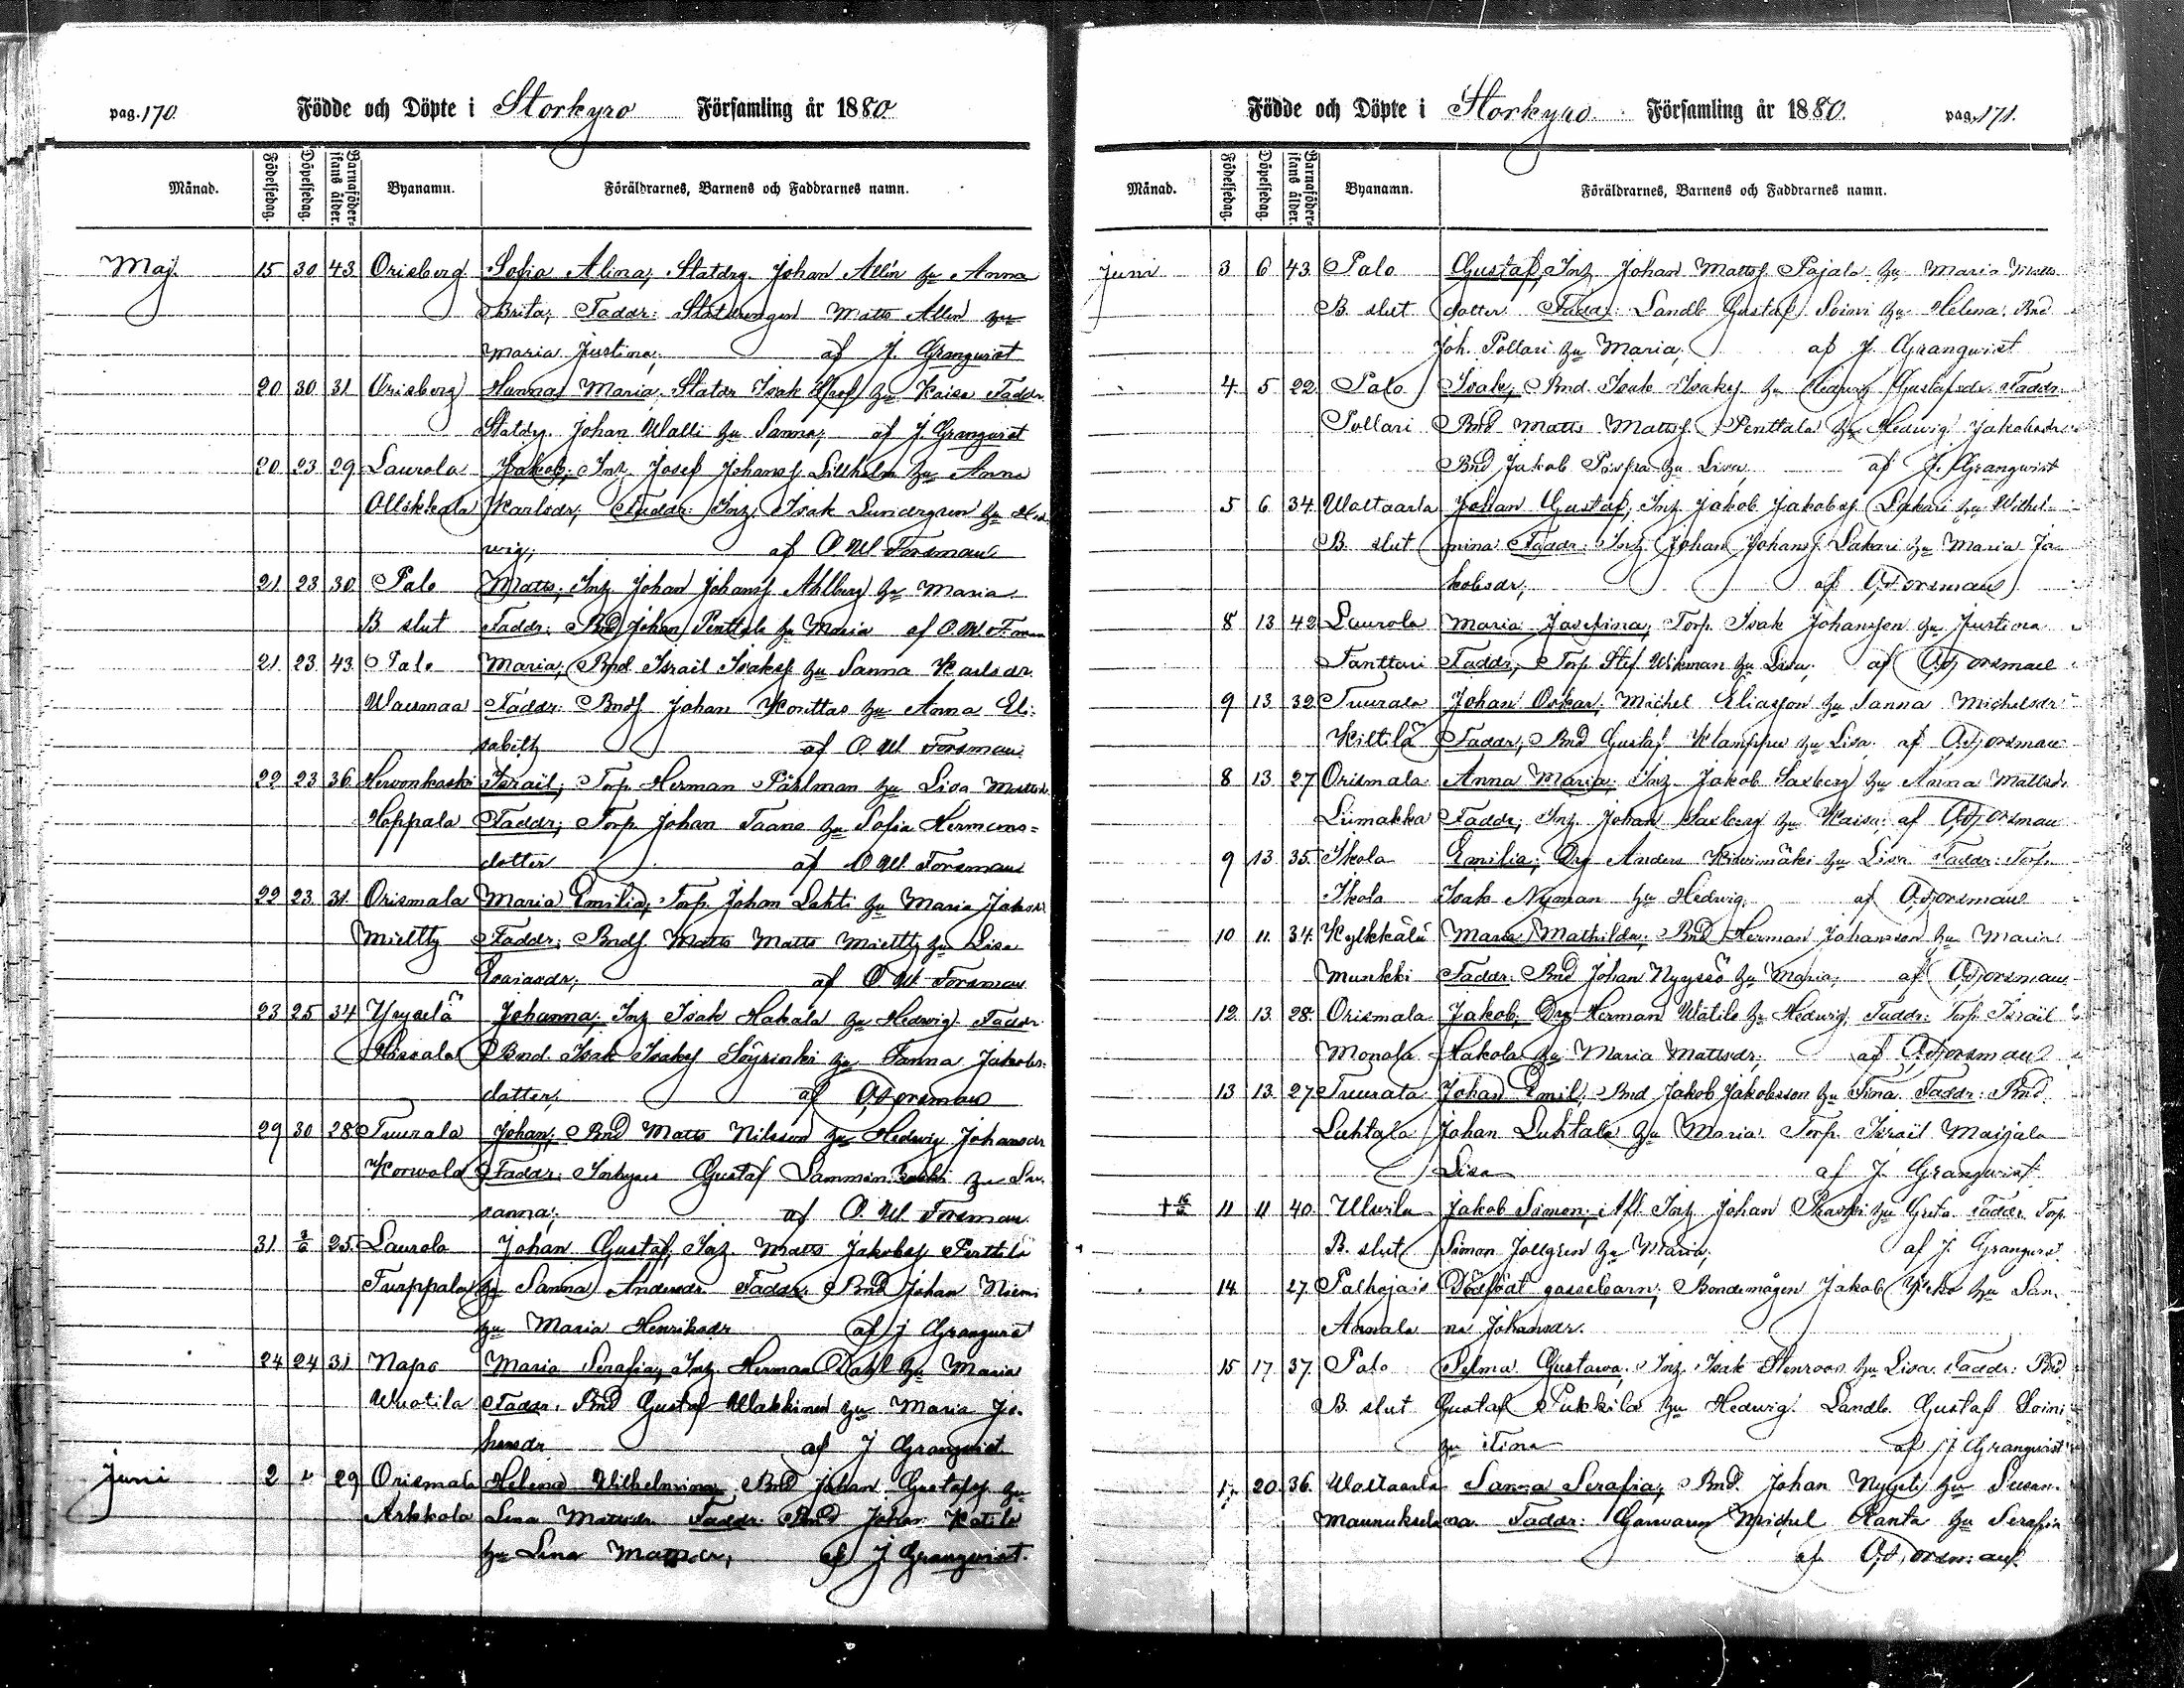 pag. 170. Födde och Döpte i Storkyro Församling år 1880
Månad. Födelsedag. Döpelsedag. Barnaföderskans ålder. Byanamn. Föräldrarnes, Barnens och Faddrarnes namn.
Maj. 15 30 43 Orisberg Sofia Alina; Statdrg. Johan Allén hu Anna
Brita; Faddr: Statdrengen Matts Allén hu
Maria Justina; af J. Granqvist
20 30 31 Orisberg Hanna Maria; Statdr Isak hu Kaisa Faddr
Statdrg. Johan Walli hu Sanna; af J. Granqvist
20 23 29 Laurola Jakob; Inh. Josef Johanss. Lillholm hu Anna
Ollikkala Karlsdr; Faddr: Inh. Isak Lundgren hu Hed
wig; af O. W. Forsman
21 23 30 Palo Matts; Inh Johan Johanss Ahlberg hu Maria
B slut Faddr: Bnd Johan Penttala hu Maria af O. W. Forsman
21 23 43 Palo Maria; Bnd Israil Isakss hu Sanna Karlsdr.
Wainmaa Faddr: Bnds Johan Konttas hu Anna Eli:
sabeth af O. W. Forsman
22 23 36 Herwonkoski Israil; Torp. Herman Påhlman hu Lisa Mattsdr
Hoppala Faddr; Torp. Johan Taano hu Sofia Hermans=
dotter af O. W. Forsman
22 23 31 Orismala Maria Emilia; Torp. Johan Lahti hu Maria Jakobsdr
Mietty Faddr; Bnds. Matts Matts Mietty hu Lisa
Esaiasdr; af O. W. Forsman
23 25 34 Johanna; Inh Isak Hakala hu Hedwig. Faddr
Hissala Bnd. Isak Isakss Söyrinki hu Sanna Jakobs:
datter; af O. Forsman
29 30 28 Tuurala Johan; Bnd Matts Nilsson hu Hedwig Johansdr
Korwola Faddr: Gustaf hu Su:
sanna; af O. W. Forsman
31 2/6 25 Laurola Johan Gustaf; Inh. Matts Jakobss Perttilä
Turppala hu Sanna Andersdr Faddr. Bnd Johan Niemi
hu Maria Henriksdr af J Granqvist
24 24 31 Napo Maria Serafia; Inh. Herman Dahl hu Maria
Wuotila Faddr. Bnd Gustaf Wakkinen hu Maria Jo-
hansdr af J Granqvist
Juni 2 29 Orismala Helena Wilhelmina; Bnd Johan Gustafss. hu
Arkkola Lena Mattsdr Faddr: Bnd Johan Katila
hu Lina Mattsdr; af J Granqvist.
Födde och Döpte i Storkyro Församling år 1880. pag. 171.
Månad. Födelsedag. Döpelsedag. Barnaföderskans ålder. Byanamn. Föräldrarnes, Barnens och Faddrarnes namn.
Juni 3 6 43 Palo Gustaf; Inh Johan Mattss. Pajala hu Maria Matts
B. slut dotter Faddr: Landb Gustaf Soini hu Helena; Bnd
Joh. Pollari hu Maria; af J. Granqvist
4 5 22 Palo Isak; Bnd. Isak Isakss hu Hedwig Gustafsdr. Faddr.
Pollari Bnd Matts Mattss Penttala hu Hedwig Jakobsdr
Bnd Jakob hu Lisa; af J. Granqvist
5 6 34 Waltaarla Johan Gustaf; Inh Jakob Jakobss. Lakari hu Wilhel-
B. slut mina Faddr: Inh Johan Johanss Lakari hu Maria Ja-
kobsdr; af O. Forsman
8 13 42 Laurola Maria Josefina; Torp. Isak Johansson hu Justina
Tanttari Faddr; Torp Stef Wikman hu Lisa; af O. Forsman
9 13 32 Tuurala Johan Oskar; Michel Eliasson hu Sanna Michelsdr
Kiltilä Faddr; Bnd Gustaf Klamppu hu Lisa af O. Forsman
8 13 27 Orismala Anna Maria; Inh Jakob Saxberg hu Anna Mattsdr
Liimakka Faddr; Inh Johan Saxberg hu Kaisa; af O. Forsman
9 13 35 Ikola Emilia; Drg Anders Kiwimäki hu Lisa Faddr: Torp.
Ikola Isak Nyman hu Hedwig. af O. Forsman
10 11 34 Kylkkälä Maria Mathilda; Bnd Herman Johansson hu Maria
Munkki Faddr. Bnd Johan Nyyssö hu Maria; af O. Forsman
12 13 28 Orismala Jakob; Drg Herman Wätilo hu Hedwig. Faddr: Torp. Israil
Monola Hakola hu Maria Mattsdr; af O. Forsman
13 13 27 Tuurala Johan Emil; Bnd Jakob Jakobsson hu Tina Faddr: Bnd
Luhtala Johan Luhtala hu Maria. Torp. Israil Maijala
Lisa af J. Granqvist
11 11 40 Ulwila Jakob Simon; Afl. Inh Johan hu Greta Faddr Torp
B. slut Simon Jollgren hu Maria; af J. Granqvist
14 27 Palhojais Dödfödt gossebarn; Bondemågen Jakob hu San-
Annala na Johansdr.
15 17 37 Palo Selma Gustawa; Inh. Isak Stenroos hu Lisa Faddr: Bnd
B. slut Gustaf Pukkila hu Hedwig. Landb. Gustaf Soini
hu Tina af J Granqvist
17 20 36 Waltaarla Sanna Serafia; Bnd. Johan hu Susan-
Maunuksela na. Faddr: Garwaren Michel Ranta hu Serafia
af O. Forsman